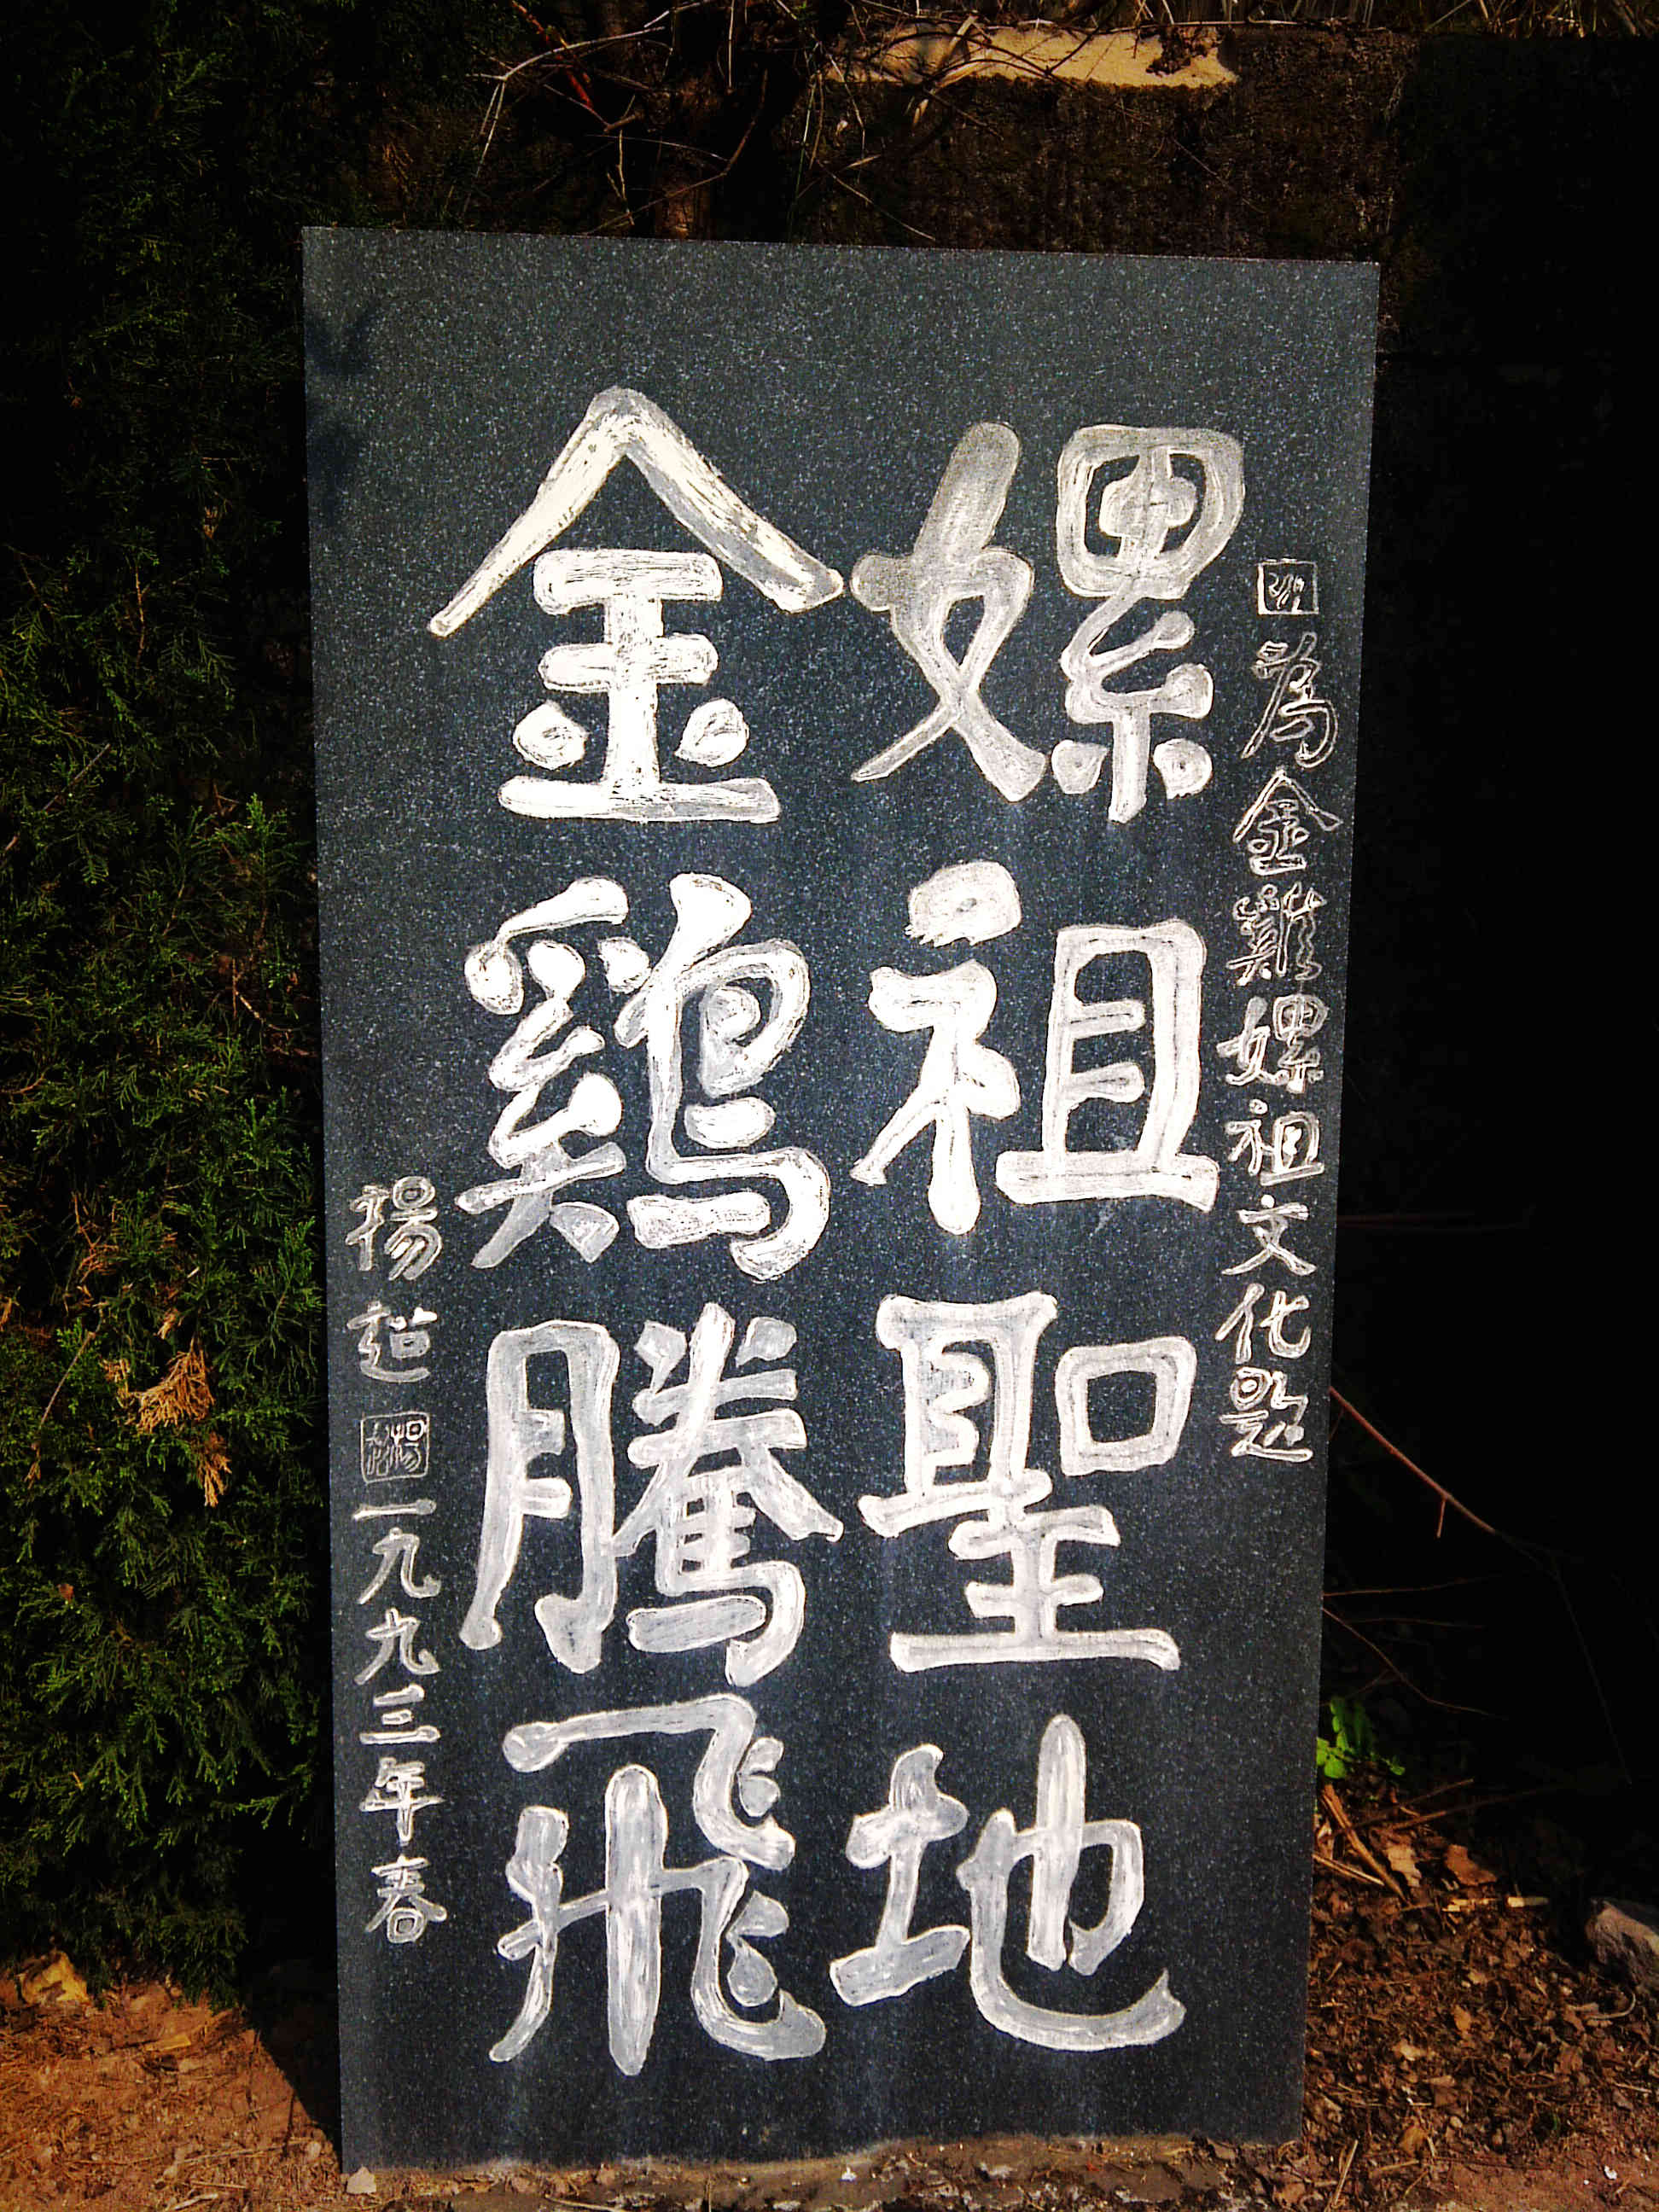 為金雞嫘祖文化题
嫘祖聖地
金鷄騰飛
楊超
一九九三年春